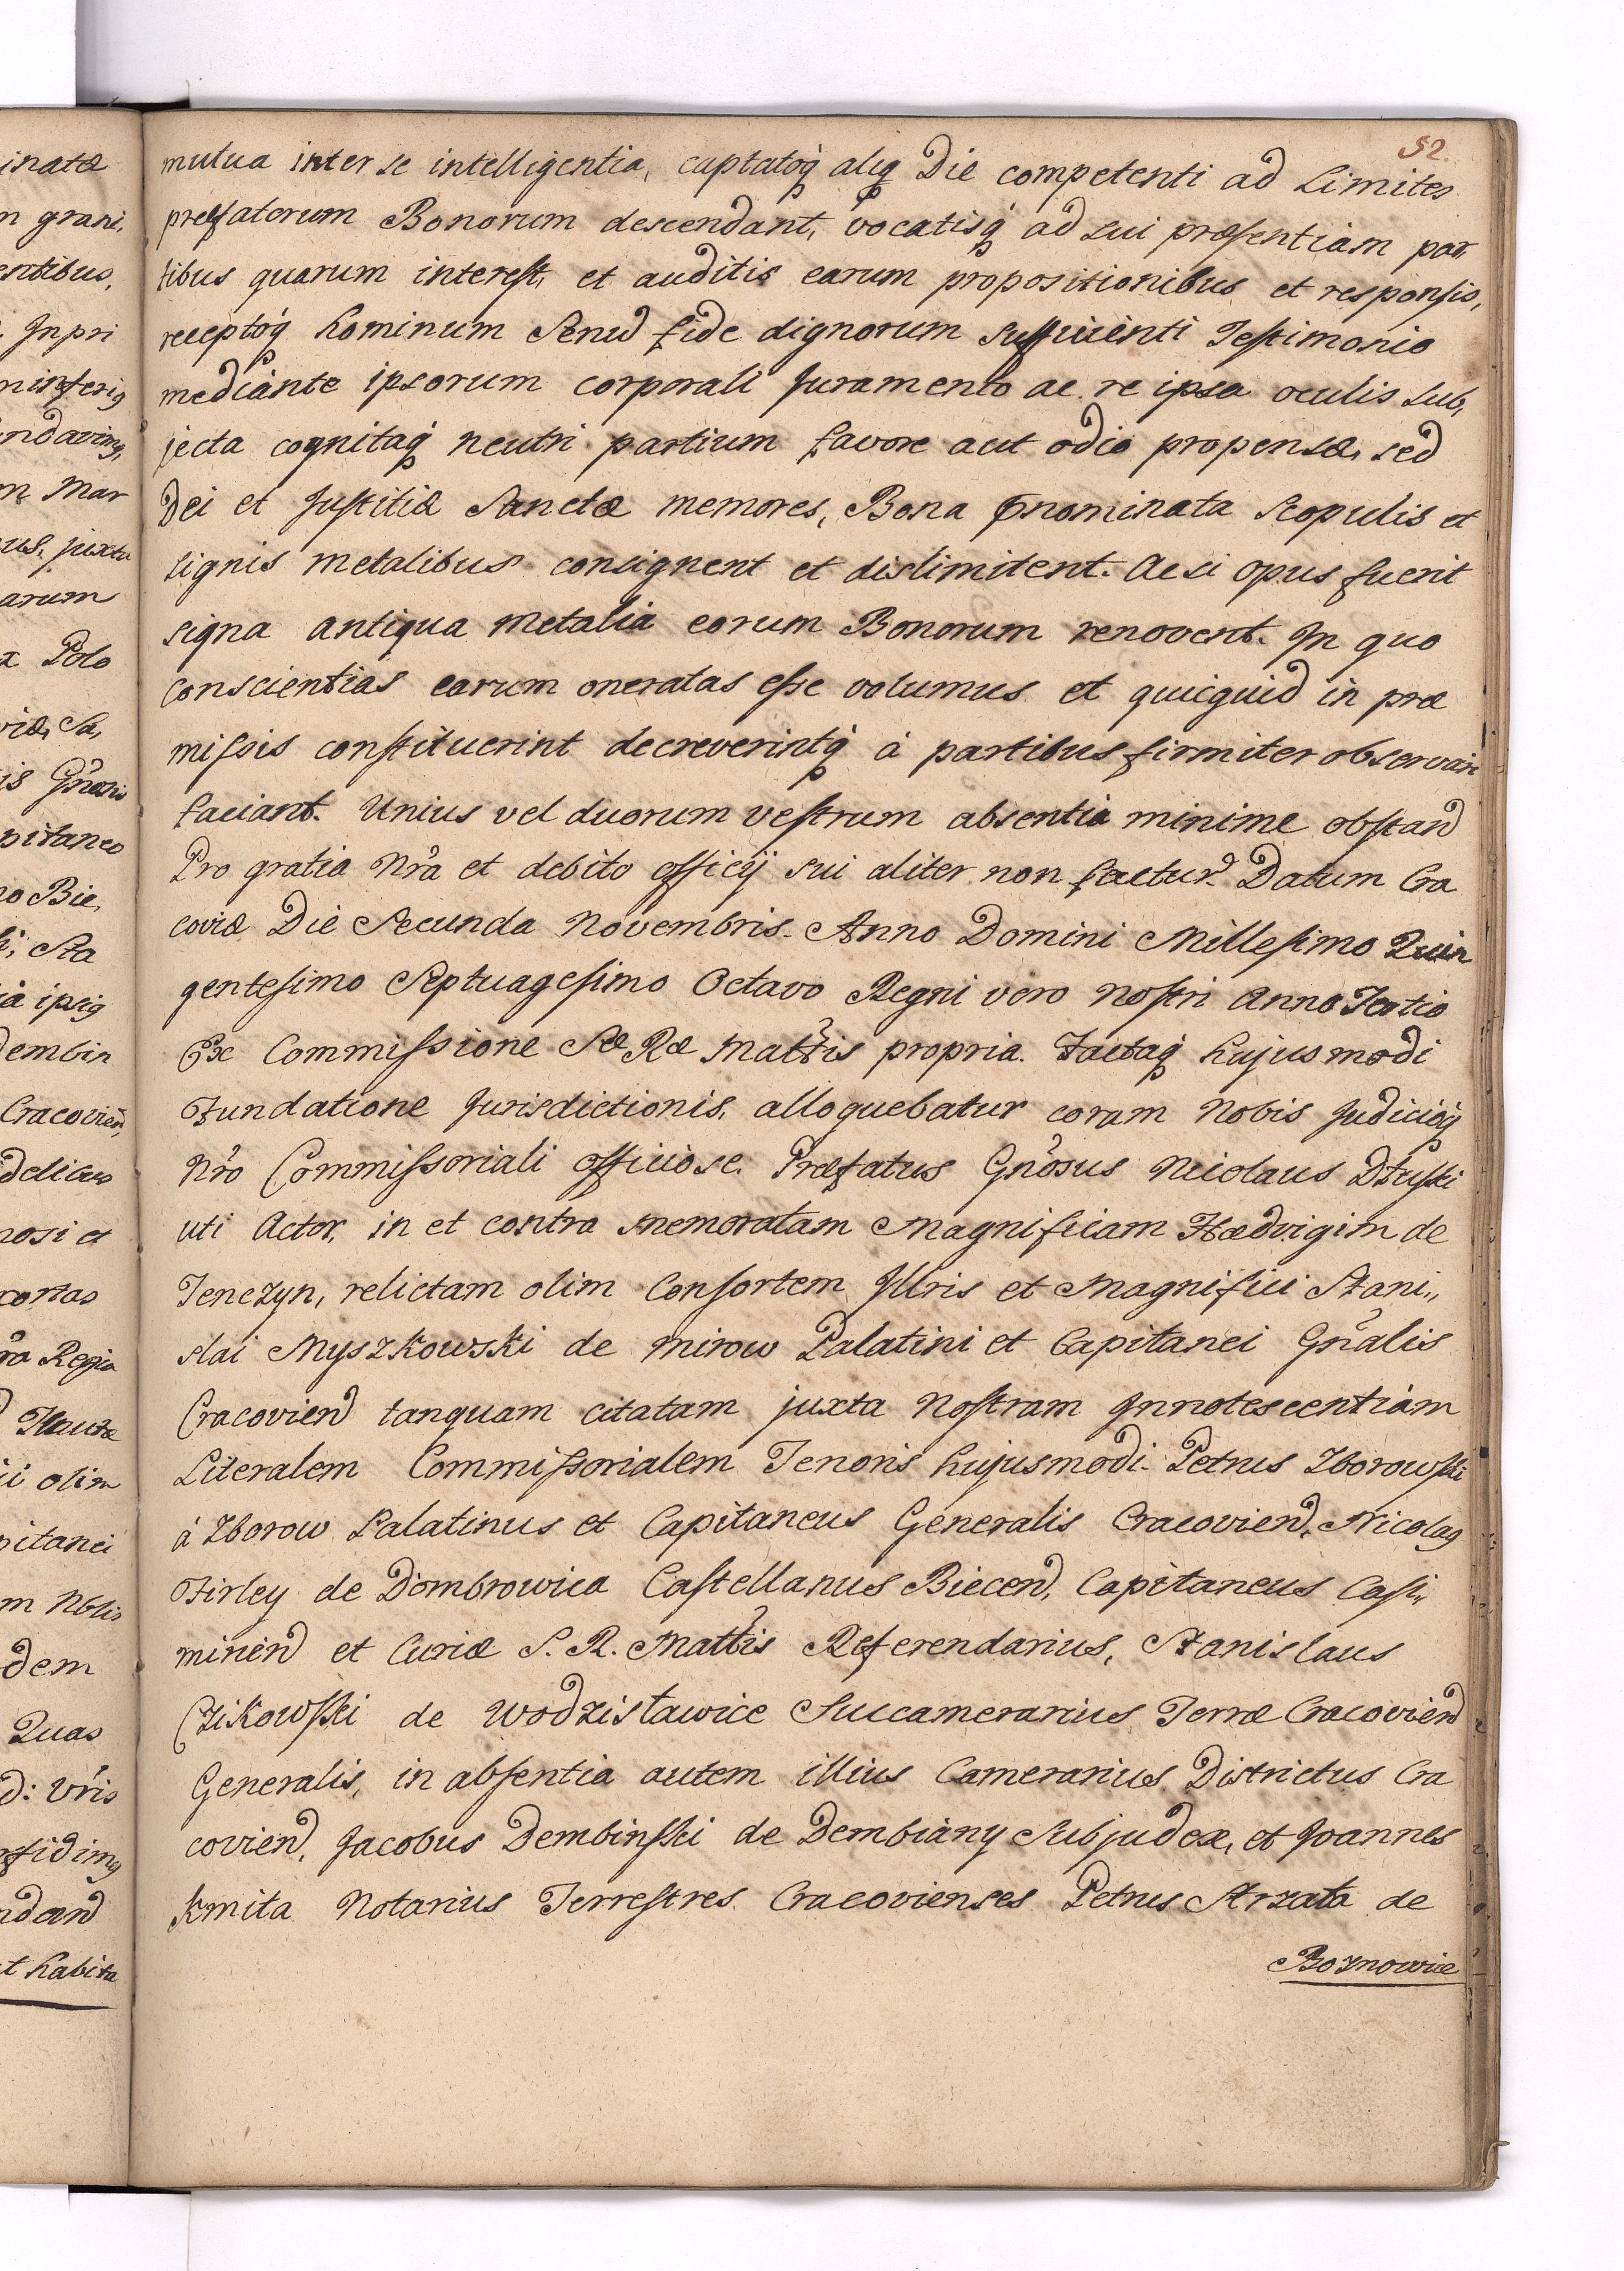 52.
mutua inter se intelligentia, captatoq́ aliq Die competenti ad Limites
præfatorum Bonorum descendant, vocatisq́ ad sui præsentiam par,
tibus quarum interest, et auditis earum propositionibus et responsis,
receptoq́ hominum Senū fide dignorum sufficienti Testimonio
mediante ipsorum corporali Juramento ac re ipsa oculis sub,
jecta cognitaq́ neutri partium favore aut odio propensæ, sed
Dei et Justitiæ Sanctæ memores, Bona pnominata Scopulis et
signis metalibus consignent et dislimitent. Ac si opus fuerit
signa antiqua metalia eorum Bonorum renovent. In quo
conscientias earum oneratas esse volumus et quicquid in præ
missis constituerint decreverintq́ à partibus firmiter observari
faciant. Unius vel duorum vestrum absentia minime obstand
Pro gratia Nrã et debito officij sui aliter non factur. Datum Cra
coviæ Die Secunda Novembris. Anno Domini Millesimo Quin
gentesimo Septuagesimo Octavo Regni vero nostri Anno Tertio
Ex Commissione Sæ Ræ Mattis propria. Factaq́ hujusmodi
Fundatione Jurisdictionis, alloquebatur coram Nobis Judicioq́
Nrõ Commissoriali officiose. Præfatus Gnõsus Nicolaus Dłuski
uti Actor, in et contra memoratam Magnificam Hædvigim de
Tenczyn, relictam olim Consortem Jllris et Magnifici Stani,,
slai Myszkowski de Mirow Palatini et Capitanei Gnãlis
Cracoviend tanquam citatam juxta Nostram Innotescentiam
Literalem Commissorialem Tenoris hujusmodi. Petrus Zborowski
à Zborow Palatinus et Capitaneus Generalis Cracoviend, Nicolaus
Firley de Dombrowica Castellanus Biecend, Capitaneus Casi,,
miriend et Curiæ S. R. Mattis Referendarius, Stanislaus
Czikowski de Wodzisławice Succamerarius Terræ Cracoviend
Generalis, in absentia autem illius Camerarius Districtus Cra
coviend, Jacobus Dembinski de Dembiany Subjudex, et Joannes
Kmita Notarius Terrestres Cracovienses Petrus Strzała de